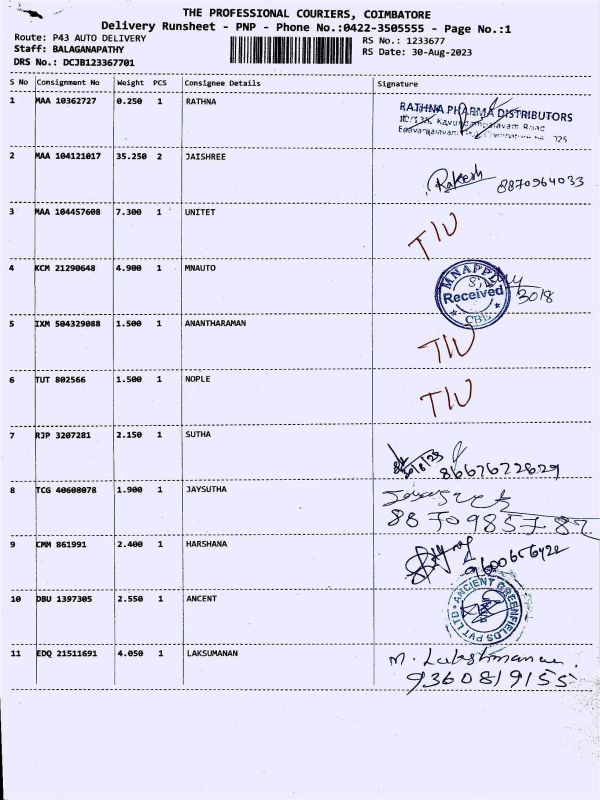 THE PROFESSIONAL COURIERS, COIMBATORE
Delivery Runsheet - PNP - Phone No.:0422-3505555 - Page No.:1
Route: P43 AUTO DELIVERY
RS No.: 1233677
Staff: BALAGANAPATHY
RS Date: 30-Aug-2023
DRS No.: DCJB123367701
S No Consignment No Weight PCS Consignee Details Signature
1 MAA 10362727 0.250 1 RATHNA
RATHNA PHARMA DISTRIBUTORS
2 MAA 104121017 35.250 2 JAISHREE
Rakesh 8870964033
3 MAA 104457608 7.300 1 UNITET
TIU
4 KCM 21290648 4.900 1 MNAUTO
Received
CBE
3018
5 IXM 504329088 1.500 1 ANANTHARAMAN
TIU
6 TUT 802566 1.500 1 NOPLE
TIU
7 RJP 3207281 2.150 1 SUTHA
30/8/23 8667672629
8 TCG 40608078 1.900 1 JAYSUTHA
9 CMM 861991 2.400 1 HARSHANA
9600656422
10 DBU 1397305 2.550 1 ANCENT
ANCIENT GREENFIELDS PVT LTD
11 EDQ 21511691 4.050 1 LAKSUMANAN
M. Lakshmanan.
9360819155